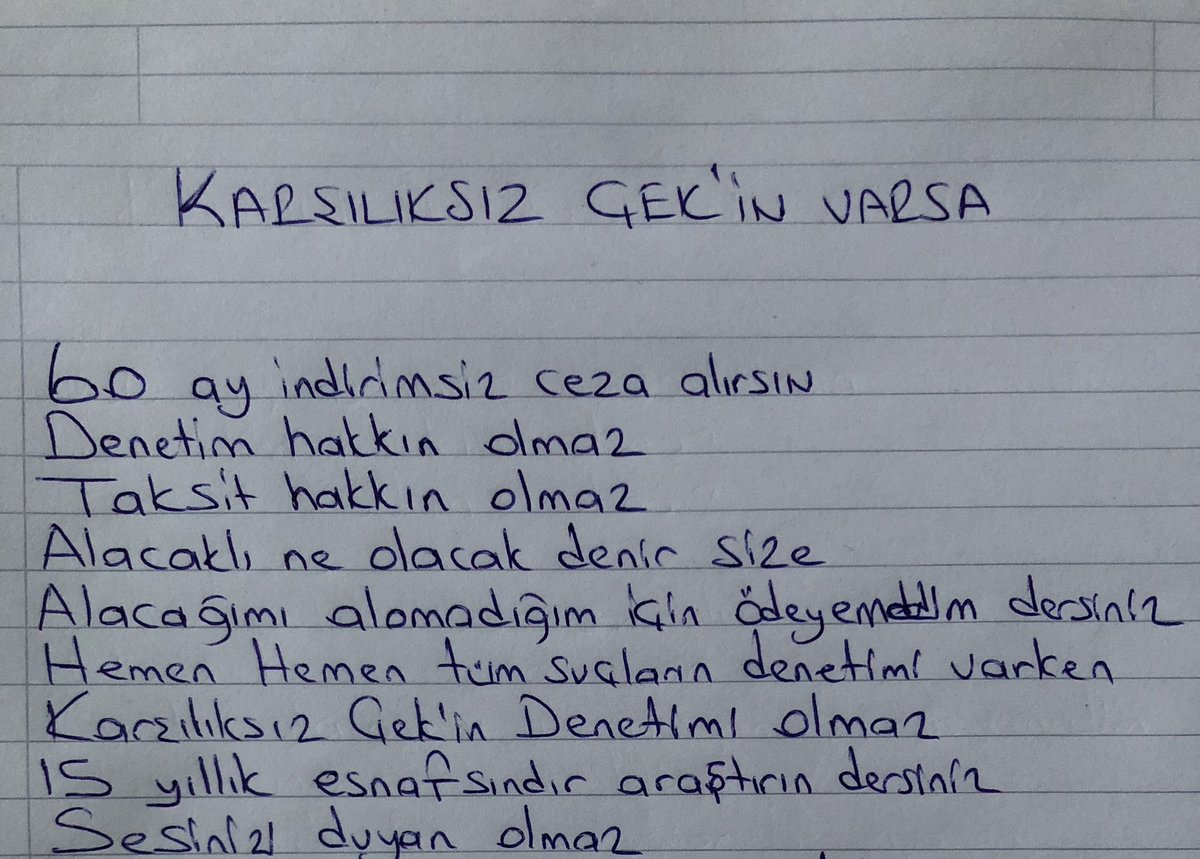 KARŞILIKSIZ ÇEK'İN VARSA
60 ay indirimsiz ceza alırsın
Denetim hakkın olmaz
Taksit hakkın olmaz
Alacaklı ne olacak denir size
Alacağımı alamadığım için ödeyemedim dersiniz
Hemen Hemen tüm suçların denetimi varken
Karşılıksız Çek'in Denetimi olmaz
15 yıllık esnafsındır araştırın dersiniz
Sesinizi duyan olmaz